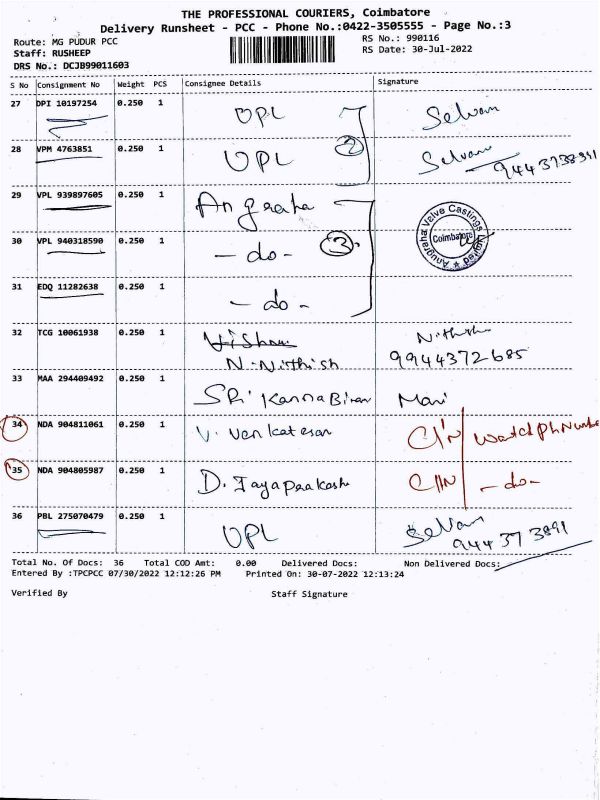 THE PROFESSIONAL COURIERS, Coimbatore
Delivery Runsheet - PCC - Phone No.:0422-3505555 - Page No.:3
Route: MG PUDUR PCC
RS No.: 990116
Staff: RUSHEEP
RS Date: 30-Jul-2022
DRS No.: DCJB99011603
S No Consignment No Weight PCS Consignee Details Signature
27 DPI 10197254 0.250 1 UPL Selvam
28 VPM 4763851 0.250 1 UPL 2 Selvam
29 VPL 939897605 0.250 1 Angraha
Anugraha Valve Castings Limited Coimbatore
30 VPL 940318590 0.250 1 - do - 3
31 EDQ 11282638 0.250 1 - do -
32 TCG 10061938 0.250 1 Nithish
N. Nithish 9944372685
33 MAA 294409492 0.250 1 SRi Kanna Biran Mani
34 NDA 904811061 0.250 1 V. Venkatesan
35 NDA 904805987 0.250 1 D. Jayaprakash - do -
36 PBL 275070479 0.250 1 UPL Selvam
944373891
Total No. Of Docs: 36 Total COD Amt: 0.00 Delivered Docs: Non Delivered Docs:
Entered By :TPCPCC 07/30/2022 12:12:26 PM Printed On: 30-07-2022 12:13:24
Verified By Staff Signature